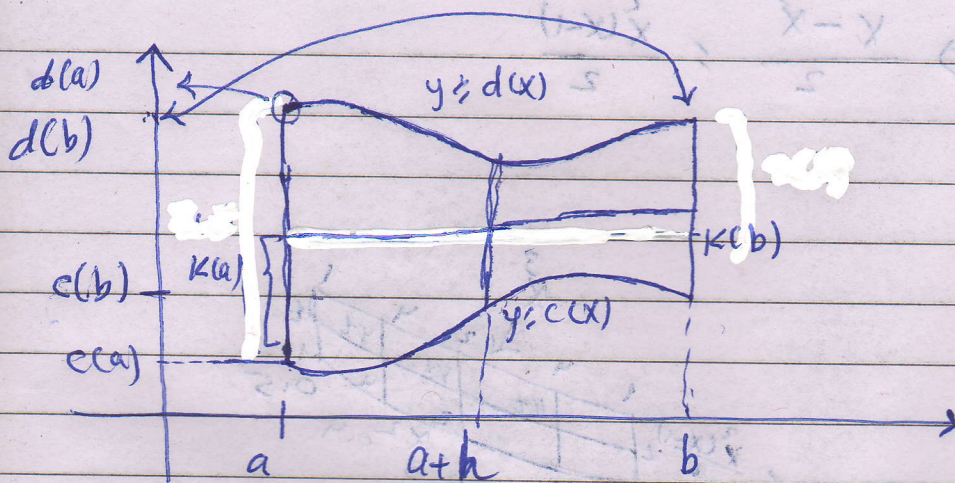 d(a)
d(b)
y = d(x)
K(a)
K(b)
c(b)
y = c(x)
c(a)
a
a+h
b